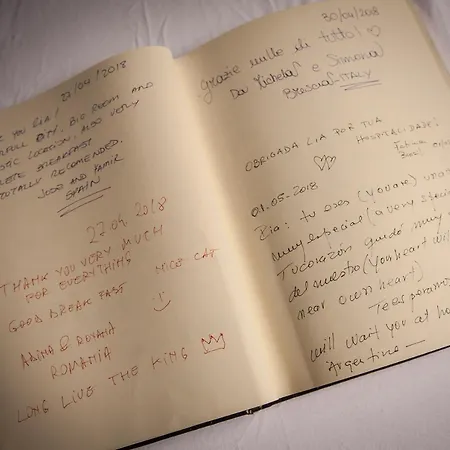 YOU LIA! 27/04/2018
CITY. BIG ROOM AND
LOCATION. ALSO VERY
COMPLETE BREAKFAST
TOTALLY RECOMENDED.
JOSE AND
SPAIN
27.04.2018
THANK YOU VERY MUCH
FOR EVERYTHING
NICE CAT
GOOD BREAK FAST
:)
ROMANIA
LONG LIVE THE KING
30/04/2018
Grazie mille di tutto! ♡
Da Michela e Simona
Brescia - ITALY
OBRIGADA LIA POR TUA
HOSPITALIDADE!
01-05-2018
Lia: tu eres (you are) una
muy especial (a very
Tu corazón quedó muy
del nuestro (You heart will
near own heart)
Te esperamos
will wait you at
Argentina —